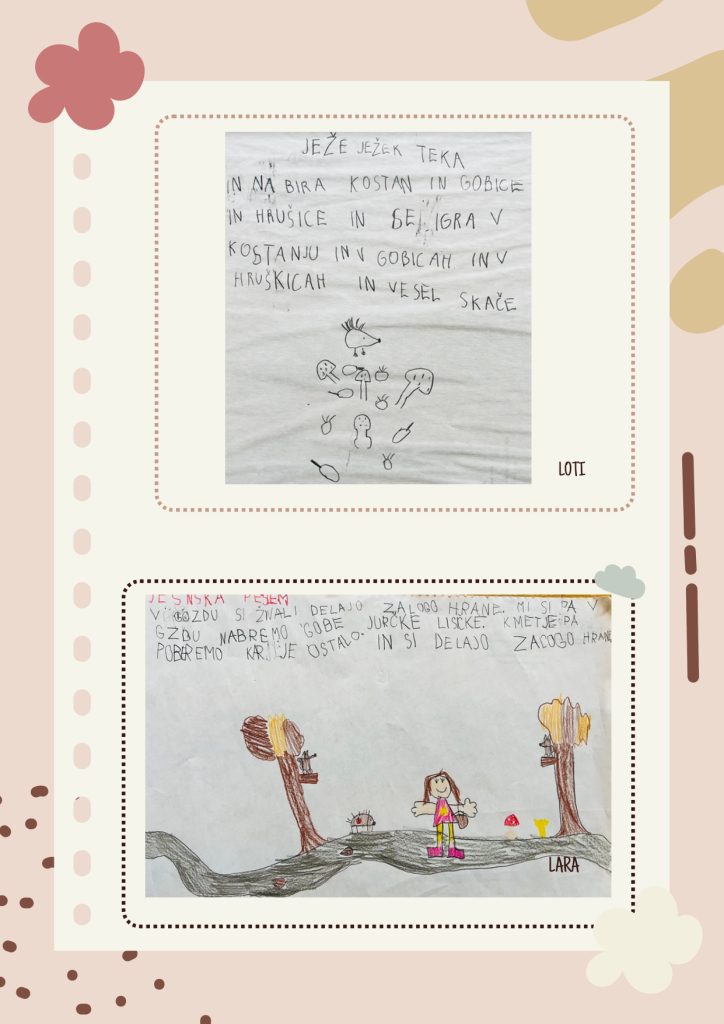 JEŽE JEŽEK TEKA
IN NA BIRA KOSTAN IN GOBICE
IN HRUŠICE IN SE IGRA V
KOSTANJU IN V GOBICAH IN V
HRUŠKICAH IN VESEL SKAČE
LOTI
JESNSKA PESEM
V GOZDU SI ŽIVALI DELAJO ZALOGO HRANE. MI SI PA V
GZDU NABREMO GOBE JURČKE LISČKE. KMETJE PA
POBEREMO KAR JE OSTALO. IN SI DELAJO ZALOGO HRANE
LARA